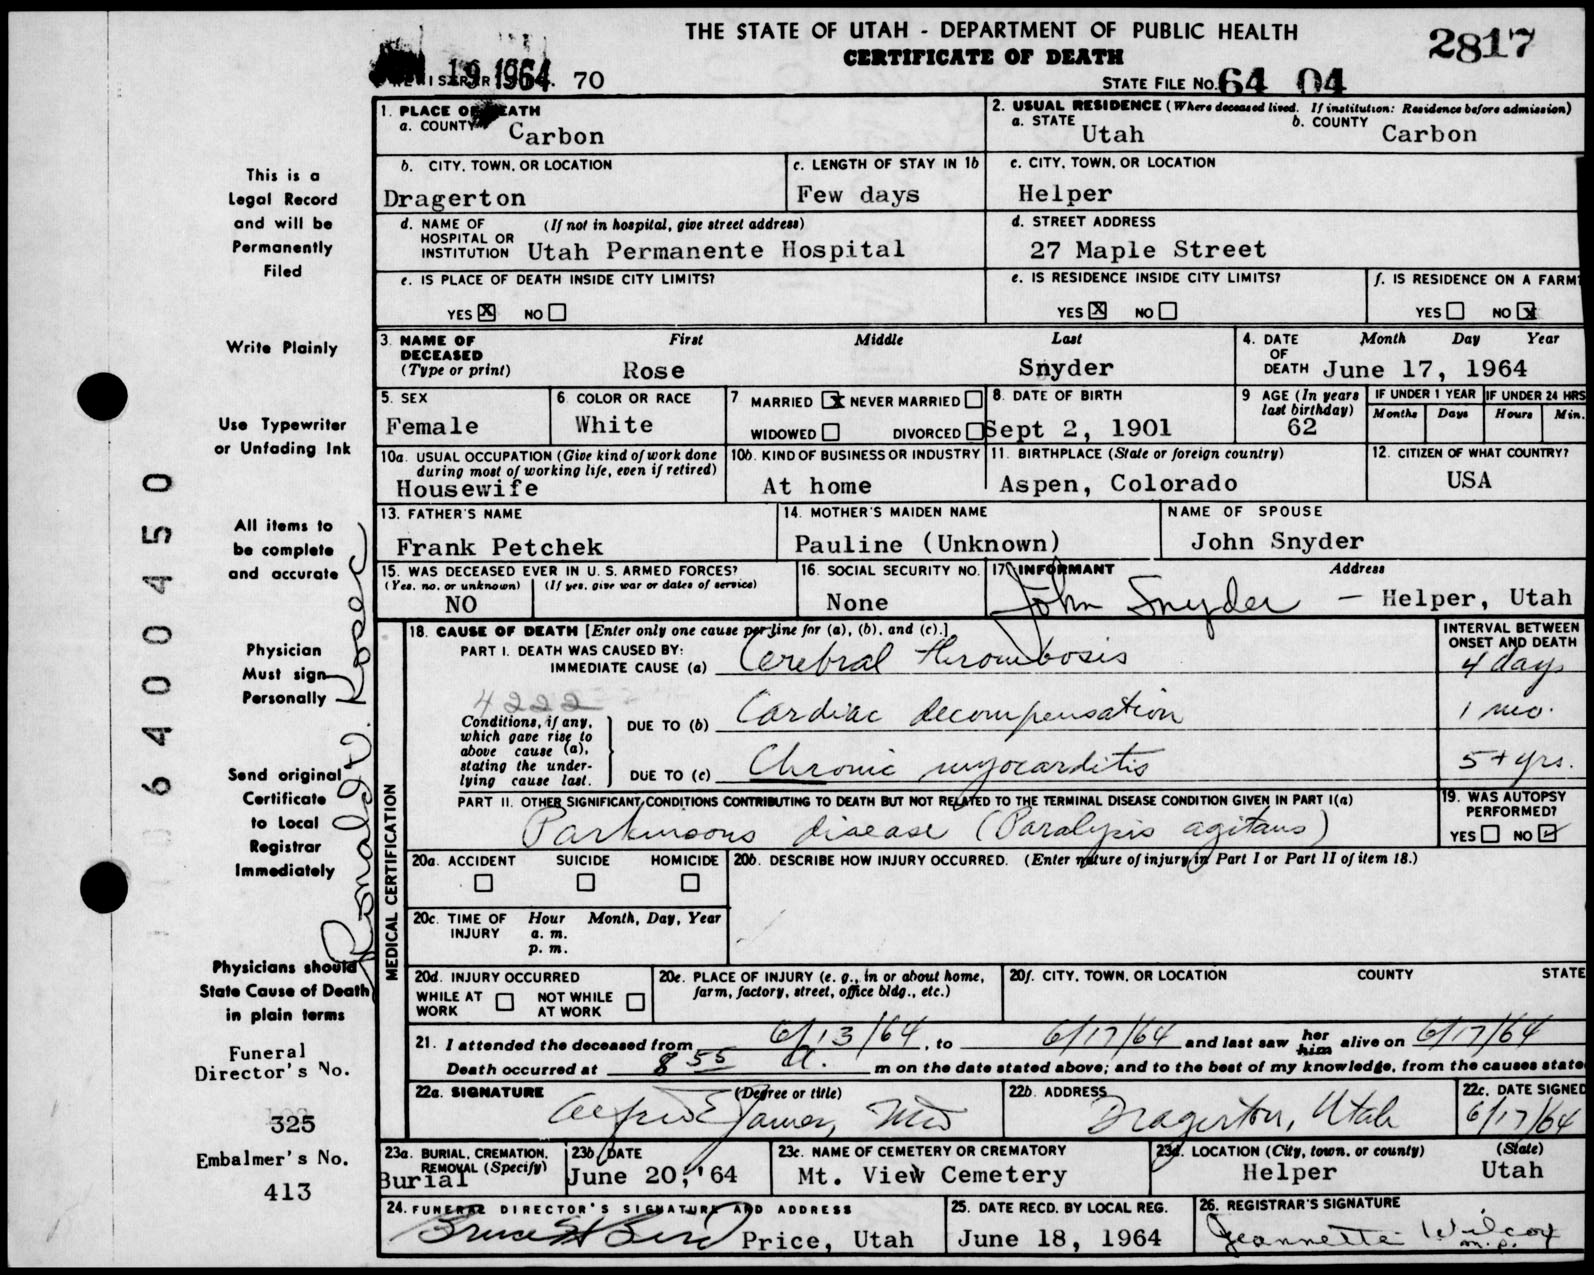 THE STATE OF UTAH - DEPARTMENT OF PUBLIC HEALTH
CERTIFICATE OF DEATH
2817
19 1964 70
STATE FILE NO. 64 04
1. PLACE OF DEATH
a. COUNTY Carbon
2. USUAL RESIDENCE (Where deceased lived. If institution: Residence before admission)
a. STATE Utah b. COUNTY Carbon
b. CITY, TOWN, OR LOCATION
Dragerton
c. LENGTH OF STAY IN 1b
Few days
c. CITY, TOWN, OR LOCATION
Helper
d. NAME OF HOSPITAL OR INSTITUTION (If not in hospital, give street address)
Utah Permanente Hospital
d. STREET ADDRESS
27 Maple Street
e. IS PLACE OF DEATH INSIDE CITY LIMITS?
YES X NO
e. IS RESIDENCE INSIDE CITY LIMITS?
YES X NO
f. IS RESIDENCE ON A FARM?
YES NO X
3. NAME OF DECEASED (Type or print) First Middle Last
Rose Snyder
4. DATE OF DEATH Month Day Year
June 17, 1964
5. SEX
Female
6. COLOR OR RACE
White
7 MARRIED X NEVER MARRIED
WIDOWED DIVORCED
8. DATE OF BIRTH
Sept 2, 1901
9 AGE (In years last birthday)
62
IF UNDER 1 YEAR
Months Days
IF UNDER 24 HRS
Hours Min.
10a. USUAL OCCUPATION (Give kind of work done during most of working life, even if retired)
Housewife
10b. KIND OF BUSINESS OR INDUSTRY
At home
11. BIRTHPLACE (State or foreign country)
Aspen, Colorado
12. CITIZEN OF WHAT COUNTRY?
USA
13. FATHER'S NAME
Frank Petchek
14. MOTHER'S MAIDEN NAME
Pauline (Unknown)
NAME OF SPOUSE
John Snyder
15. WAS DECEASED EVER IN U. S. ARMED FORCES?
(Yes, no, or unknown) (If yes, give war or dates of service)
NO
16. SOCIAL SECURITY NO.
None
17. INFORMANT Address
John Snyder - Helper, Utah
MEDICAL CERTIFICATION
18. CAUSE OF DEATH [Enter only one cause per line for (a), (b), and (c).]
INTERVAL BETWEEN ONSET AND DEATH
PART I. DEATH WAS CAUSED BY:
IMMEDIATE CAUSE (a) Cerebral thrombosis 4 days
4222
Conditions, if any, which gave rise to above cause (a), stating the underlying cause last.
DUE TO (b) Cardiac decompensation 1 mo.
DUE TO (c) Chronic myocarditis 5+ yrs.
PART II. OTHER SIGNIFICANT CONDITIONS CONTRIBUTING TO DEATH BUT NOT RELATED TO THE TERMINAL DISEASE CONDITION GIVEN IN PART I(a)
Parkinsons disease (Paralysis agitans)
19. WAS AUTOPSY PERFORMED?
YES NO ✓
20a. ACCIDENT SUICIDE HOMICIDE
20b. DESCRIBE HOW INJURY OCCURRED. (Enter nature of injury in Part I or Part II of item 18.)
20c. TIME OF INJURY Hour Month, Day, Year
a. m.
p. m.
20d. INJURY OCCURRED
WHILE AT WORK NOT WHILE AT WORK
20e. PLACE OF INJURY (e. g., in or about home, farm, factory, street, office bldg., etc.)
20f. CITY, TOWN, OR LOCATION COUNTY STATE
21. I attended the deceased from 6/13/64, to 6/17/64 and last saw her him alive on 6/17/64
Death occurred at 8 55 a. m on the date stated above; and to the best of my knowledge, from the causes state
22a. SIGNATURE (Degree or title)
Alfred E James, MD
22b. ADDRESS
Dragerton, Utah
22c. DATE SIGNED
6/17/64
23a. BURIAL, CREMATION, REMOVAL (Specify)
Burial
23b. DATE
June 20, '64
23c. NAME OF CEMETERY OR CREMATORY
Mt. View Cemetery
23d. LOCATION (City, town, or county) (State)
Helper Utah
24. FUNERAL DIRECTOR'S SIGNATURE AND ADDRESS
Price, Utah
25. DATE RECD. BY LOCAL REG.
June 18, 1964
26. REGISTRAR'S SIGNATURE
Jeannette Wilcox
This is a
Legal Record
and will be
Permanently
Filed
Write Plainly
Use Typewriter
or Unfading Ink
All items to
be complete
and accurate
Physician
Must sign
Personally
Send original
Certificate
to Local
Registrar
Immediately
Physicians should
State Cause of Death
in plain terms
Funeral
Director's No.
325
Embalmer's No.
413
6400450